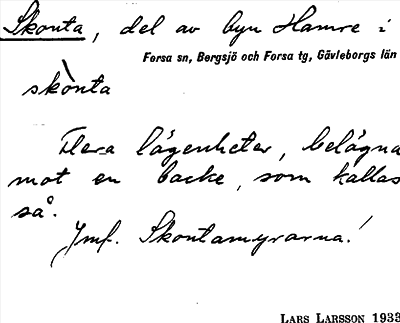 Skonta, del av byn Hamre i
Forsa sn, Bergsjö och Forsa tg, Gävleborgs län
skònta
Flera lägenheter, belägna
mot en backe, som kallas
så.
Jmf. Skontamyrarna!
LARS LARSSON 1933